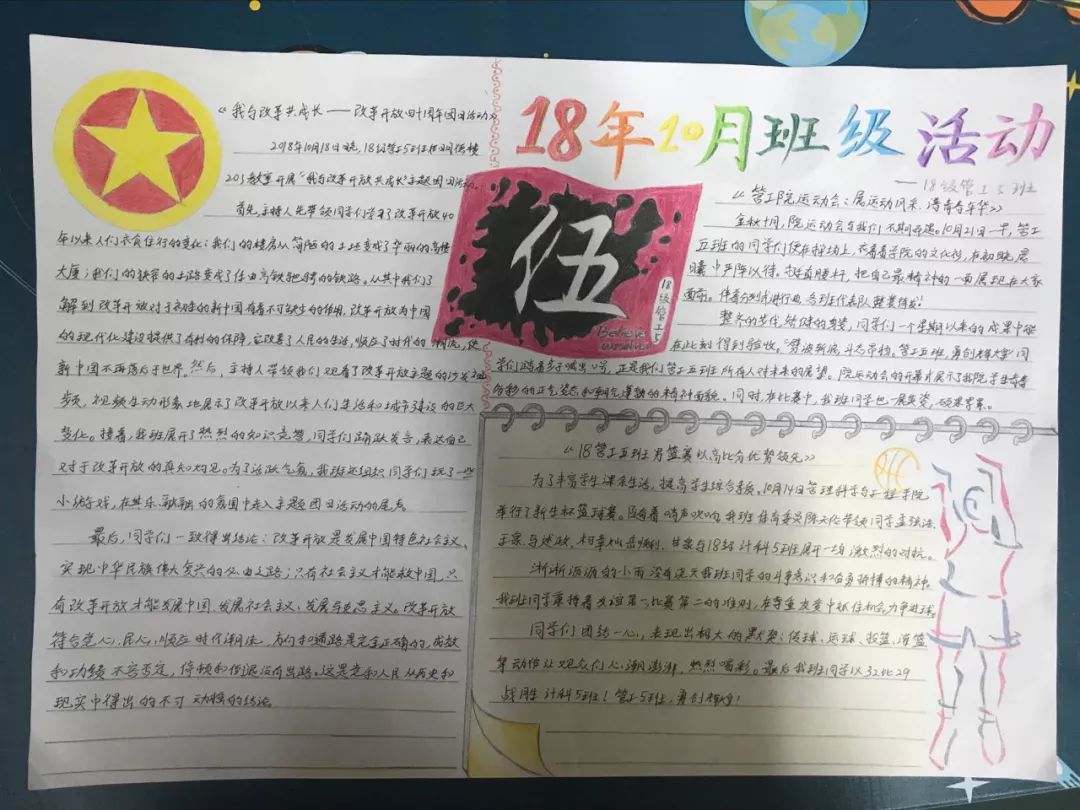 18年10月班级活动
——18级管工5班
《我与改革共成长——改革开放四十周年团日活动》
2018年10月18日晚,18级管工5班在明德楼
203教室开展“我与改革开放共成长”主题团日活动。
首先,主持人先带领同学们学习了改革开放40
年以来人们衣食住行的变化:我们的楼房从简陋的土地变成了华丽的高楼
大厦;我们的狭窄的土路变成了任由高铁驰骋的铁路。从其中我们了
解到改革开放对于初生的新中国有着不可缺少的作用,改革开放为中国
的现代化建设提供了有利的保障,它改善了人民的生活,顺应了时代的潮流,使
新中国不再落后于世界。然后,主持人带领我们观看了改革开放主题的
视频,视频生动形象地展示了改革开放以来人们生活和城市建设的巨大
变化。接着,我班展开了热烈的知识竞赛,同学们踊跃发言,表达自己
对于改革开放的真知灼见。为了活跃气氛,我班还组织同学们玩了一些
小游戏,在其乐融融的氛围中走入主题团日活动的尾声。
最后,同学们一致得出结论:改革开放是发展中国特色社会主义、
实现中华民族伟大复兴的必由之路;只有社会主义才能救中国,只
有改革开放才能发展中国、发展社会主义、发展马克思主义。改革开放
符合党心、民心,顺应时代潮流,方向和道路是完全正确的,成效
和功绩不容否定,停顿和倒退没有出路。这是党和人民从历史和
现实中得出的不可动摇的结论。
伍
18级管工5
Believe
ourselves
《管工院运动会:展运动风采,涛青春年华》
金秋十月,院运动会与我们不期而遇。10月21日一早,管工
五班的同学们便在操场上,衣着着学院的文化衫,在初晓晨
曦中严阵以待。挺直腰杆,把自己最精神的一面展现在大家
面前。伴着分列式进行曲,各班代表队整装待发!
整齐的步伐,矫健的身姿,同学们一个星期以来的成果中能
在此刻得到验收。“劈波斩浪,斗志昂扬。管工五班,勇创辉煌”同
学们踏着步子喊出口号,正是我们管工五班所有人对未来的展望。院运动会的开幕式展示了我院学生青春
的正气姿态和朝气蓬勃的精神面貌。同时,在比赛中,我班同学也一展英姿,硕果累累。
《18管工五班男篮赛以高比分优势领先》
为了丰富学生课余生活,提高学生综合素质。10月14日管理科学与工程学院
举行了新生杯篮球赛。随着哨声吹响,我班体育委员陈天伦带领同学孟强浩、
与18级计科5班展开一场激烈的对抗。
淅淅沥沥的小雨没有浇灭我班同学的斗争意识和奋勇拼搏的精神。
我班同学秉持着友谊第一,比赛第二的准则,在尊重友爱中抓住机会,力争进球。
同学们团结一心,表现出极大的默契:传球、运球、投篮、灌篮
等动作让观众们心潮澎湃,热烈喝彩。最后我班同学以32比29
战胜计科5班!管工5班,勇创辉煌!